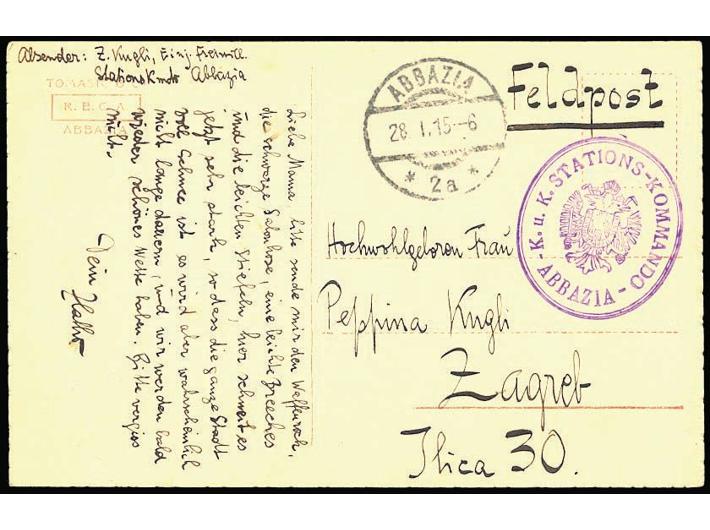 Absender: Z. Kugli, Einj. Freiwill.
Stationskmdo Abbazia
R. B. C. A.
ABBAZIA
ABBAZIA
28. I. 15-6
* 2a *
Feldpost
K. u. K. STATIONS-KOMMANDO
- ABBAZIA -
Hochwohlgeboren Frau
Peppina Kugli
Zagreb
Ilica 30.
Liebe Mama bitte sende mir den Waffenrock,
die schwarze Salonhose, eine leichte Breeches
und die leichten Stiefeln, hier schneit es
jetzt sehr stark, so dass die ganze Stadt
voll Schnee ist es wird aber wahrscheinlich
nicht lange dauern, und wir werden bald
wieder schönes Wetter haben. Bitte vergiss
nicht.
Dein